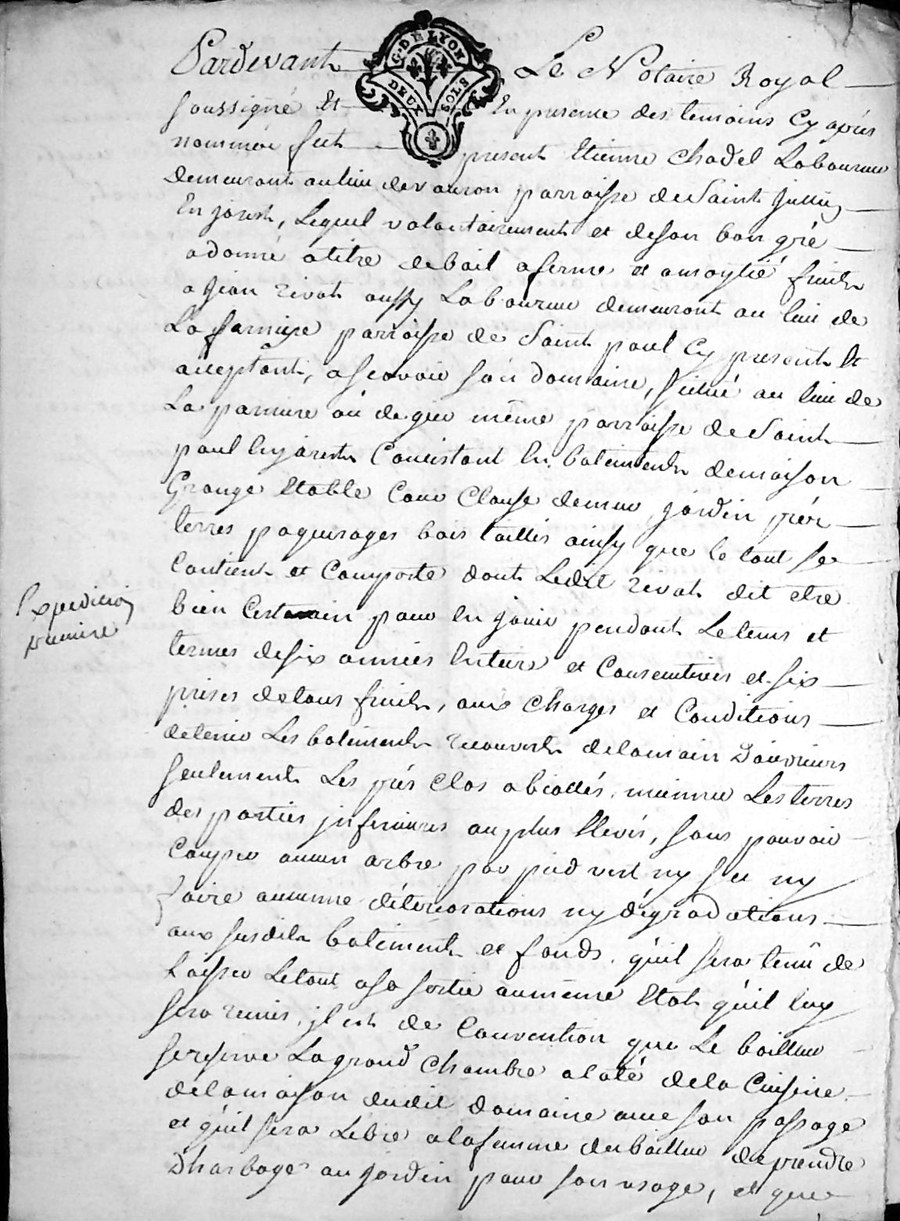 G. DE LYON
DEUX SOLS
Pardevant Le Notaire Royal
soussigné Et En presence des temoins Cy après
nommés fut present Etienne chadel Laboureur
demeurant au lieu de parroisse de Saint Jullien
En jarest, Lequel volontairement et de son bon gré
a donné a titre de bail a ferme et a moytié fruits
a Jean rivat aussy Laboureur demeurant au lieu de
La parroisse de Saint paul Cy present Et
acceptant, a scavoir son domaine, situé au lieu de
La même parroisse de Saint
paul En jarest Consistant En batiments de maison
Grange Etable Cour Clause de mur jardin prés
terres paquerages bois taillis ainsy que le tout se
Contient et Comporte dont Ledit revat dit etre
bien Certain pour En jouir pendant Le tems et
termes de six années Entieres et Consecutives et six
prises de tous fruits, aux charges et Conditions
de tenir Les batiments recouverts de la main d'ouvriers
seulement Les prés clos abiallés, Les terres
des parties inferieures au plus Elevés, sans pouvoir
Couper aucun arbre par pied vert ny sec ny
faire aucunne déteriorations ny dégradations
aux susdits batiments et fonds, qu'il sera tenû de
Laisser Le tout a sa sortie au même Etat qu'il luy
sera remis, il est de Convention que Le bailleur
se reserve La grand chambre a laté de la Cuisine
de la maison dudit domaine avec son passage
et qu'il sera Libre a la femme du bailleur de prendre
D'harbage au jardin pour son usage, et que
Expedition
premiere